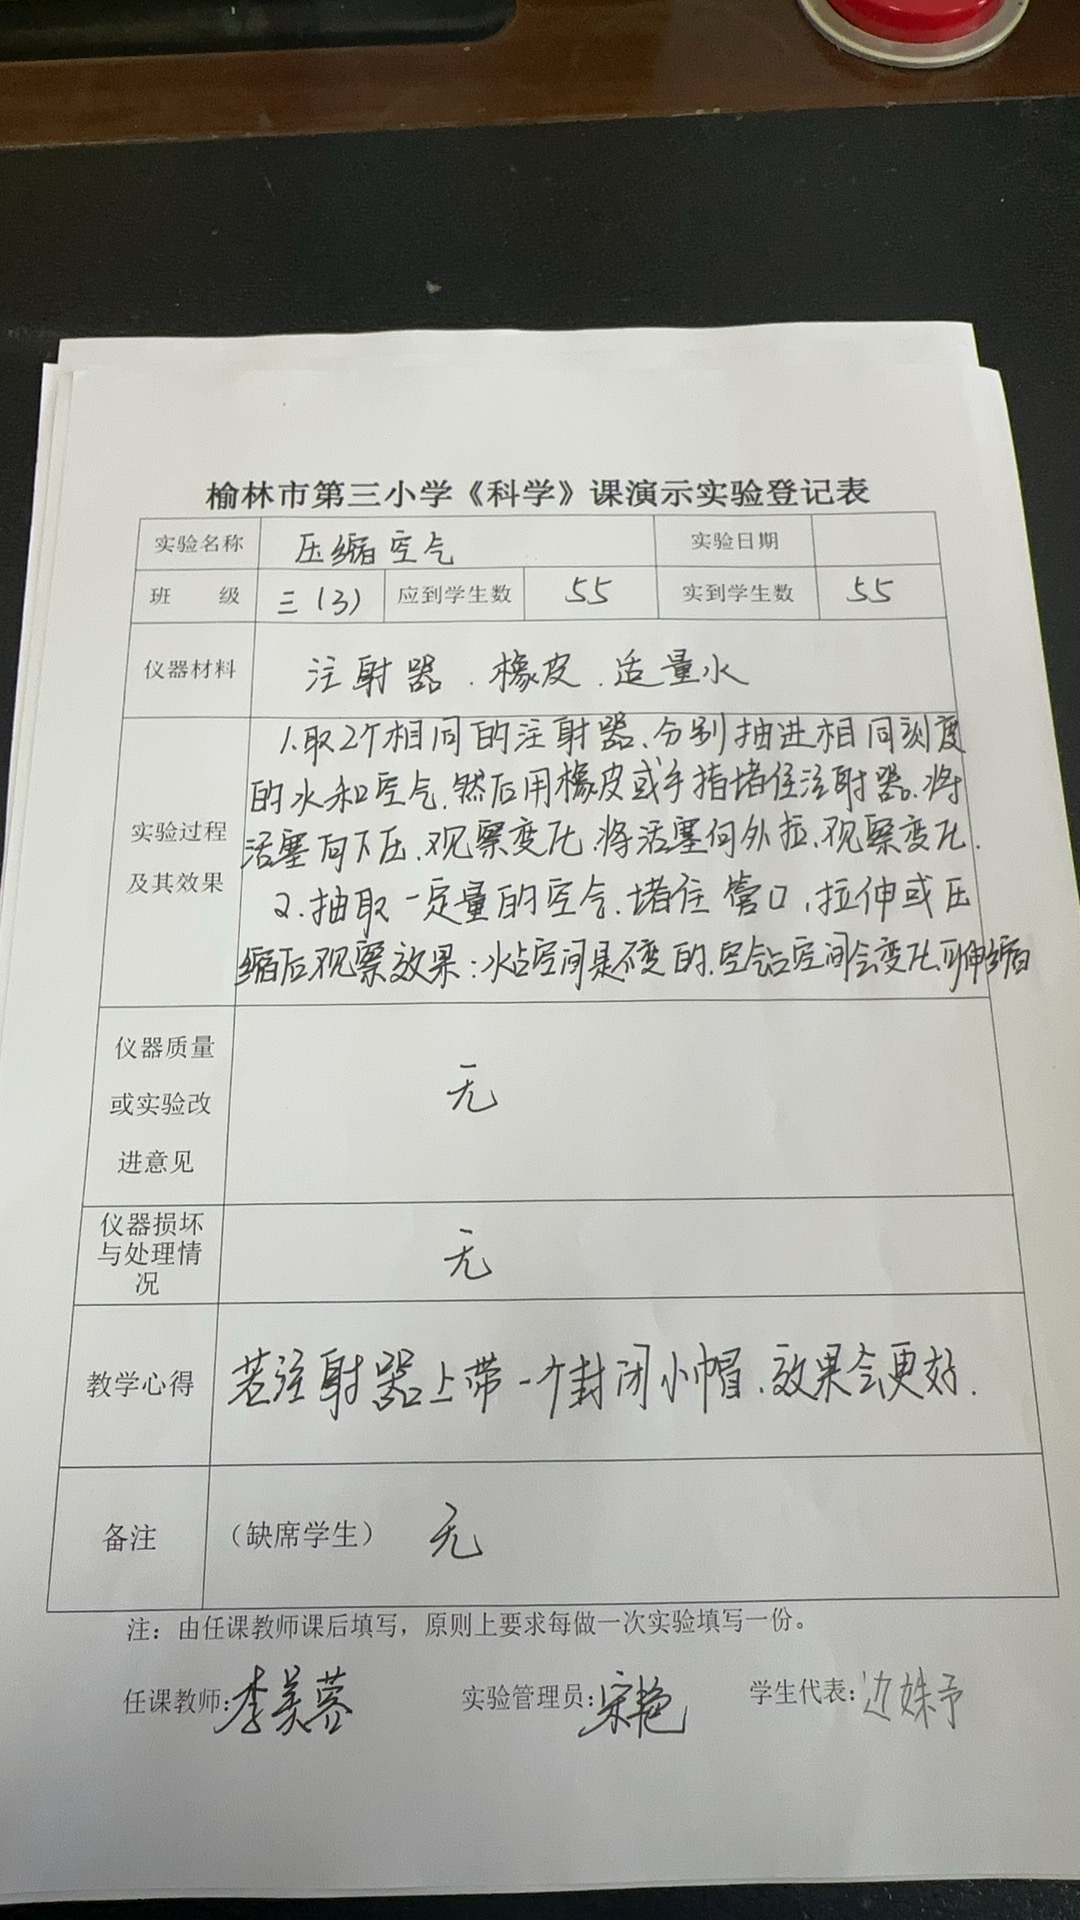 榆林市第三小学《科学》课演示实验登记表
实验名称 压缩空气 实验日期
班 级 三(3) 应到学生数 55 实到学生数 55
仪器材料 注射器、橡皮、适量水
实验过程
及其效果
1.取2个相同的注射器、分别抽进相同刻度
的水和空气,然后用橡皮或手指堵住注射器,将
活塞向下压,观察变化,将活塞向外拉,观察变化.
2.抽取一定量的空气,堵住管口,拉伸或压
缩后观察效果:水占空间是不变的,空气占空间会变化,可伸缩
仪器质量
或实验改
进意见
无
仪器损坏
与处理情
况
无
教学心得 若注射器上带一个封闭小帽,效果会更好.
备注 (缺席学生) 无
注:由任课教师课后填写,原则上要求每做一次实验填写一份。
任课教师:李美蓉 实验管理员:宋艳 学生代表:边姝予